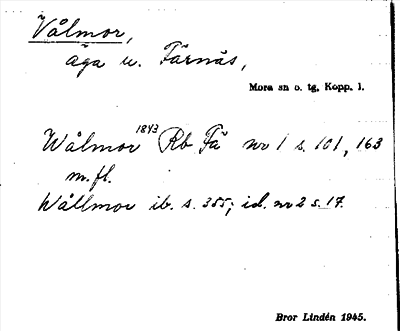 Vålmor,
äga u. Färnäs,
Mora sn o. tg, Kopp. l.
Wålmor 1843 Rb Fä nr 1 s. 101, 163
m.fl.
Wållmor ib. s. 355; id. nr 2 s. 17.
Bror Lindén 1945.